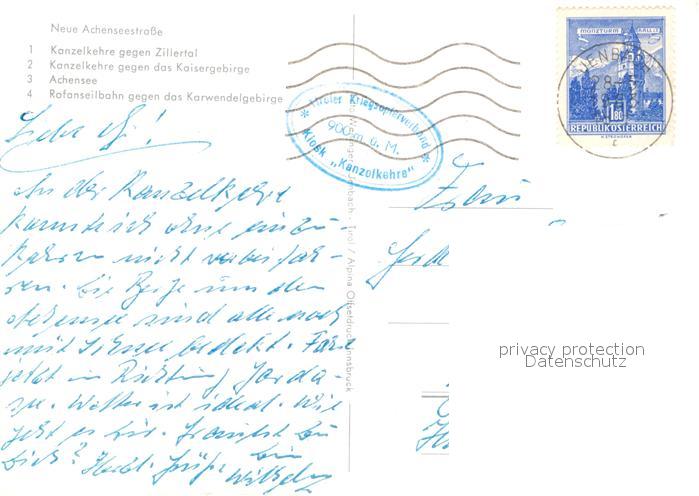 Neue Achenseestraße
1 Kanzelkehre gegen Zillertal
2 Kanzelkehre gegen das Kaisergebirge
3 Achensee
4 Rofanseilbahn gegen das Karwendelgebirge
Tiroler Kriegsopferverband
900 m. ü. M.
Kiosk „Kanzelkehre“
MÜNZTURM HALL I. T.
1.80
REPUBLIK ÖSTERREICH
An der Kanzelkehre
konnte ich ohne einzu-
kehren nicht vorbeifah-
ren. Die Berge um den
Achensee sind alle noch
mit Schnee bedeckt. Fahre
jetzt in Richtung Garda-
see. Wetter ist ideal. Wie
geht es Dir?
Herzl. Grüße
Jenbach - Tirol / Alpina Offsetdruck Innsbruck
Frau
privacy protection
Datenschutz